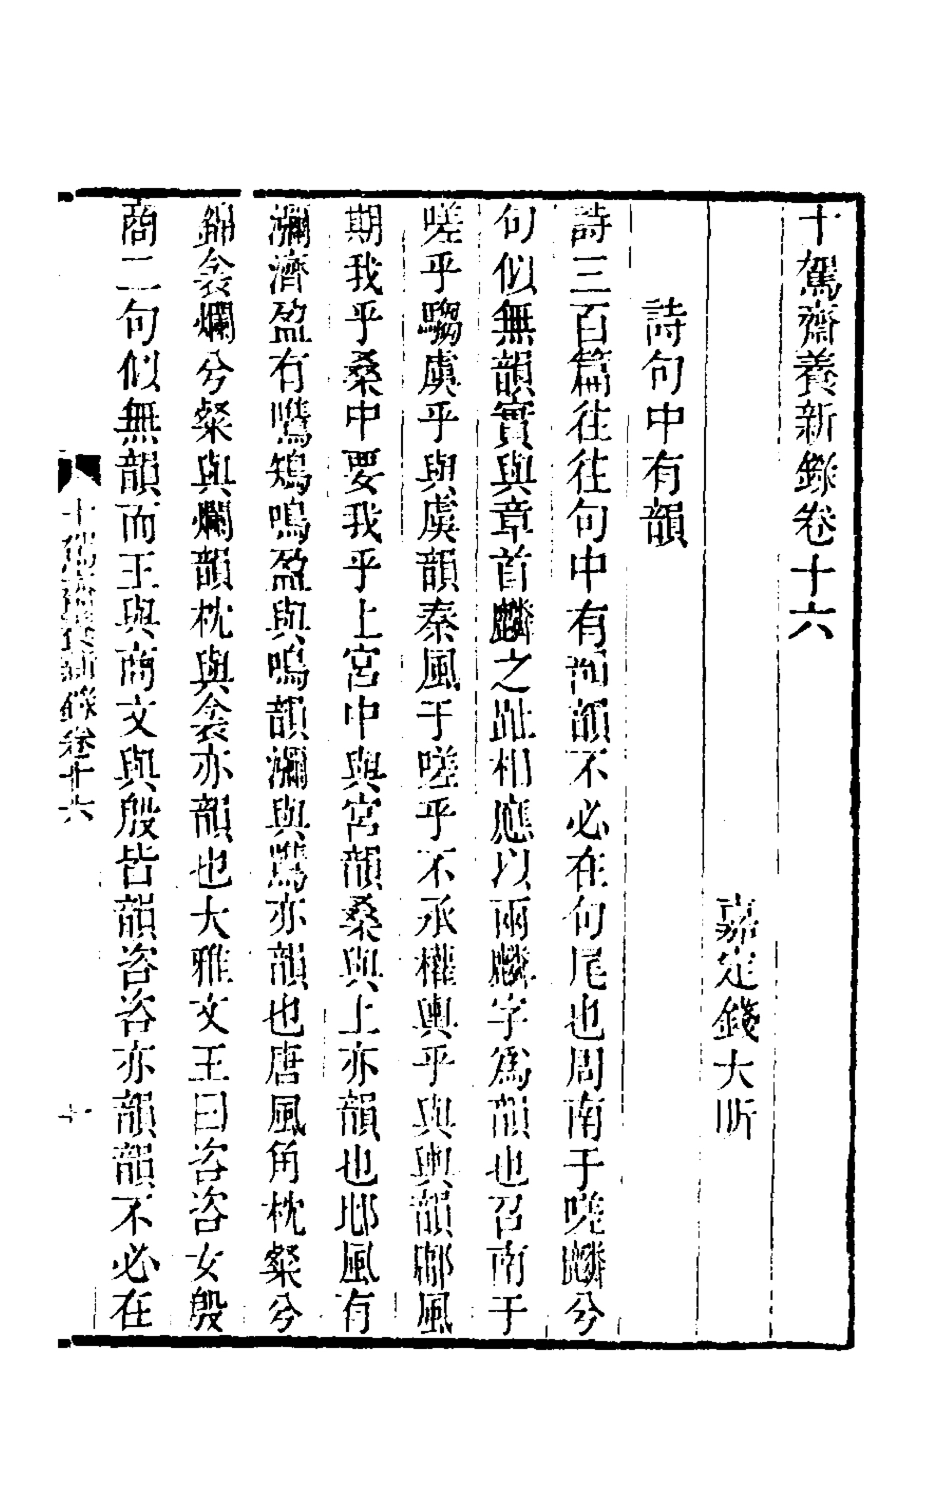 十駕齋養新錄卷十六
嘉定錢大昕
詩句中有韻
詩三百篇往往句中有韻韻不必在句尾也周南于嗟麟兮
句似無韻實與章首麟之趾相應以兩麟字爲韻也召南于
嗟乎騶虞乎與虞韻秦風于嗟乎不承權輿乎與輿韻鄘風
期我乎桑中要我乎上宮中與宮韻桑與上亦韻也邶風有
瀰濟盈有鷕雉鳴盈與鳴韻瀰與鷕亦韻也唐風角枕粲兮
錦衾爛兮粲與爛韻枕與衾亦韻也大雅文王曰咨咨女殷
商二句似無韻而王與商文與殷皆韻咨咨亦韻韻不必在
十駕齋養新錄卷十六